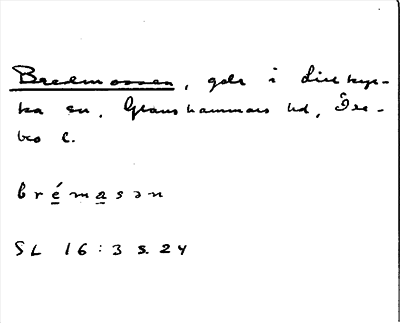 Bredmossen, gdr i Lillkyr-
ka sn, Glanshammars hd, Öre-
bro l.
brémasən
SL 16:3 s. 24